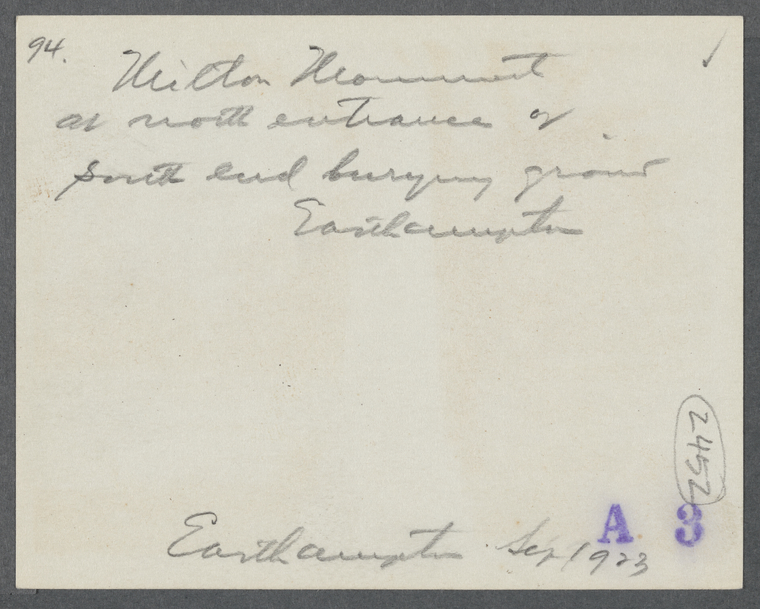 94.
Milton Monument
at north entrance of
South end burying ground
Easthampton
2452
A 3
Easthampton Sep 1923